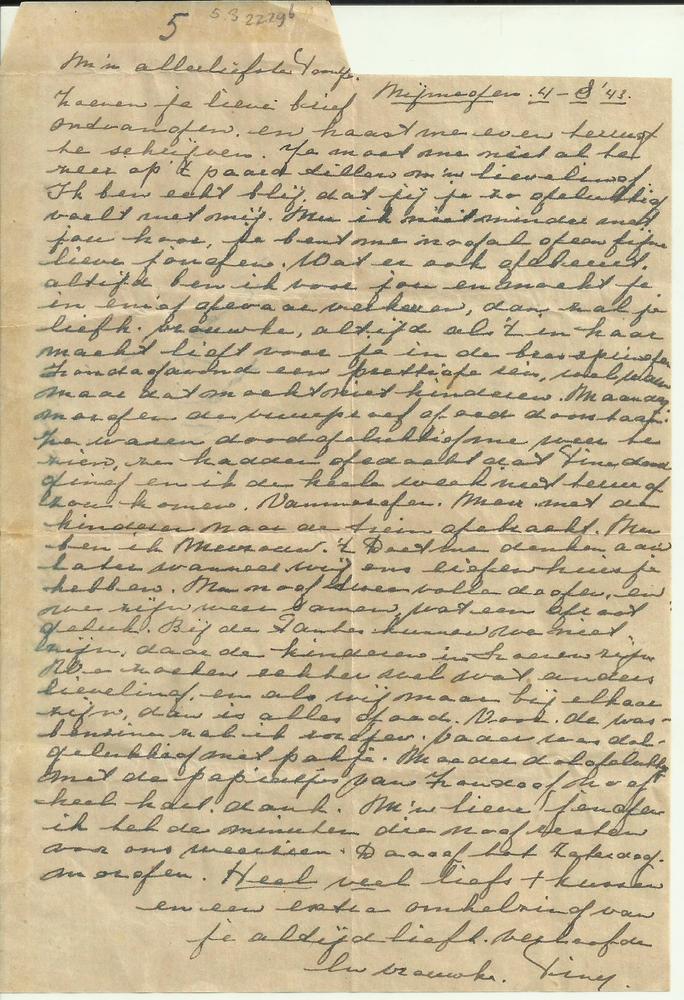 5 5.3 22296
M'n allerliefste Toontje.
Nijmegen. 4-8'43.
Zoeven je lieve brief
ontvangen, en haast me even terug
te schrijven. Je moet me niet al te
zeer op 't paard tillen m'n lieveling
Ik ben echt blij, dat jij je zo gelukkig
voelt met mij. Mr ik niet minder met
jou hoor, je bent me nogal geen fijne
lieve jongen. Wat er ook gebeurt.
altijd ben ik voor jou en mocht je
in enig gevaar verkeren, dan zal je
liefh. vrouwke, altijd als 't in haar
macht ligt voor je in de bres springen
Zondagavond een prettige reis, wel
maar dat mocht niet hinderen. Maandag
morgen de vuurproef goed doorstaan.
Ze waren doodgelukkig me weer te
zien, ze hadden gedacht dat Tiny
ging en ik de heele week niet terug
zou komen. Vanmorgen. Mevr. met de
kinderen naar de trein gebracht. Nu
ben ik Mevrouw. 't Doet me denken aan
later wanneer wij ons eigen huisje
hebben. Mr nog twee volle dagen, en
we zijn weer samen, wat een groot
geluk. Bij de Tantes kunnen we niet
zijn, daar de kinderen in zijn
We zoeken echter wel wat anders
lieveling, en als wij maar bij elkaar
zijn, dan is alles goed. Voor de was-
benzine zal ik zorgen. was dol-
gelukkig met pakje. Moeder dolgelukkig
met de papiertjes van Zondag nog
heel hart. dank. M'n lieve jongen
ik tel de minuten die nog resten
voor ons weerzien. Daag tot Zaterdag-
morgen. Heel veel liefs + kussen
en een extra omhelzing van
je altijd liefh. verloofde
en vrouwke. Tiny.